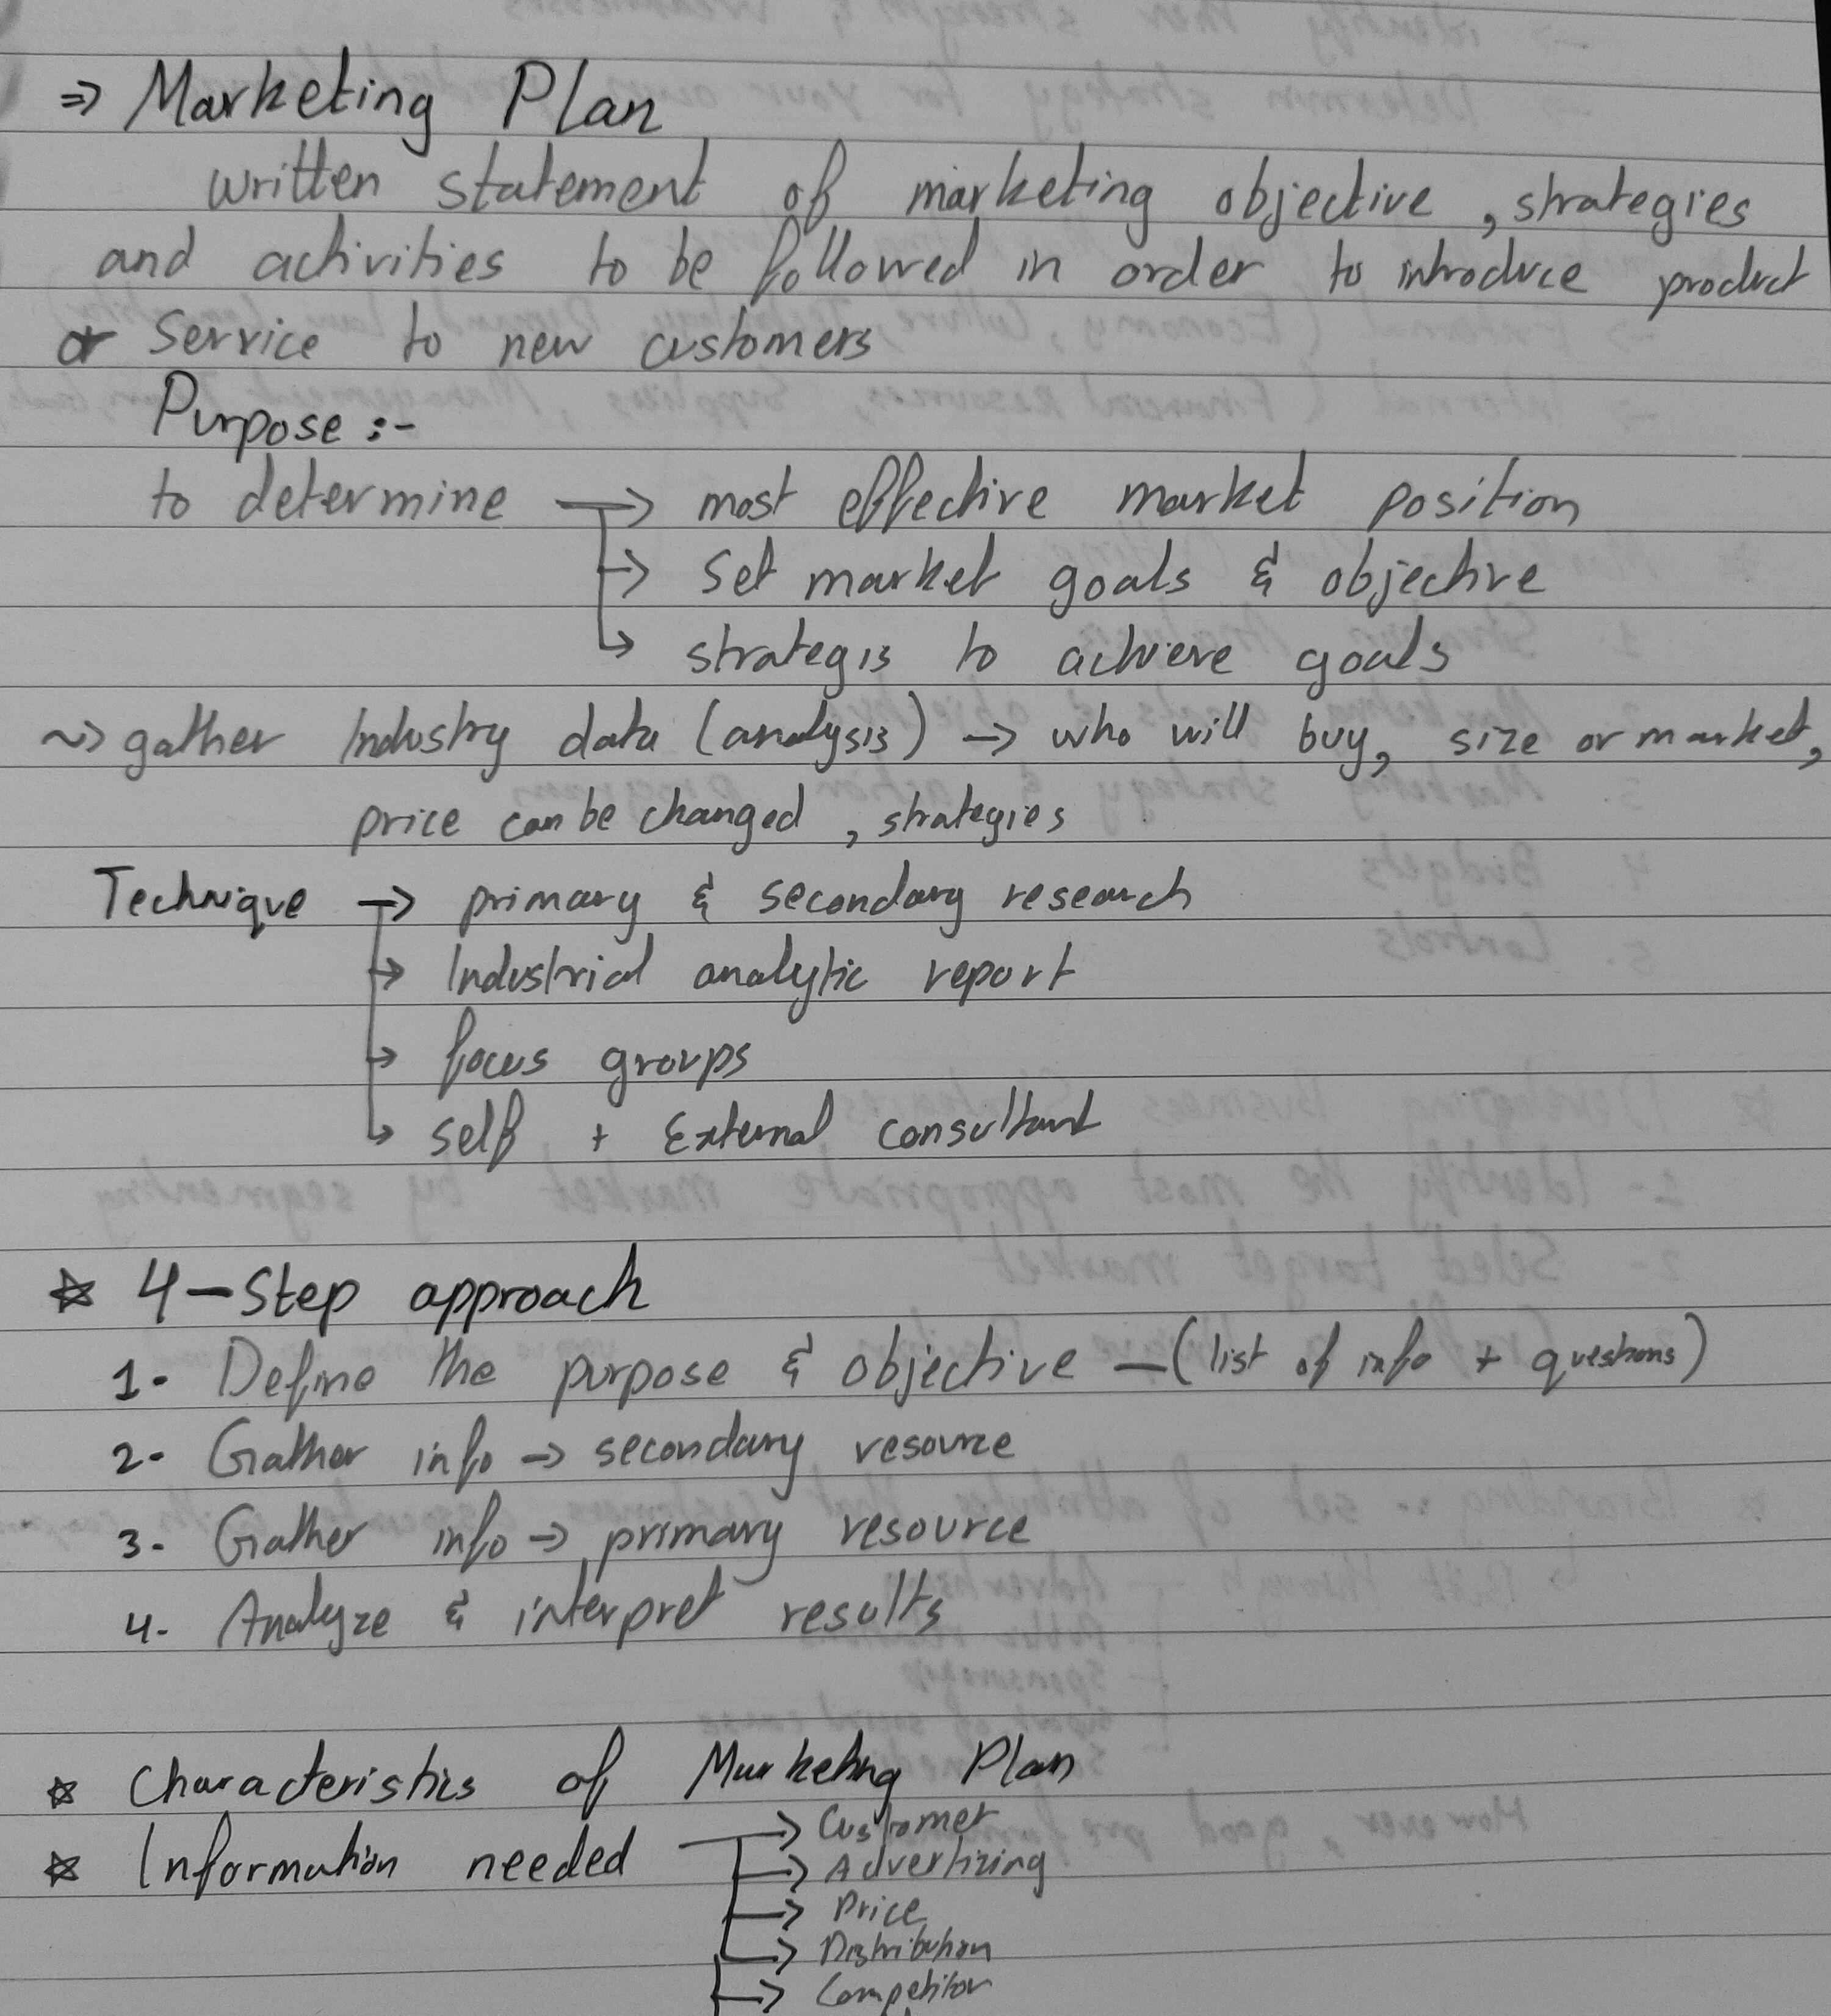 ⇒ Marketing Plan
written statement of marketing objective, strategies
and activities to be followed in order to introduce product
or Service to new customers
Purpose :-
to determine → most effective market position
→ Set market goals & objective
↳ strategis to achieve goals
~> gather Industry data (analysis) → who will buy, size or market,
price can be changed, strategies
Technique → primary & secondary research
→ Industrial analytic report
→ focus groups
↳ self + External consultant
☆ 4-Step approach
1- Define the purpose & objective — (list of info + questions)
2- Gather info → secondary resource
3- Gather info → primary resource
4- Analyze & interpret results
☆ Characteristics of Marketing Plan
☆ Information needed → Customer
→ Advertizing
→ Price
→ Distribution
→ Competitor